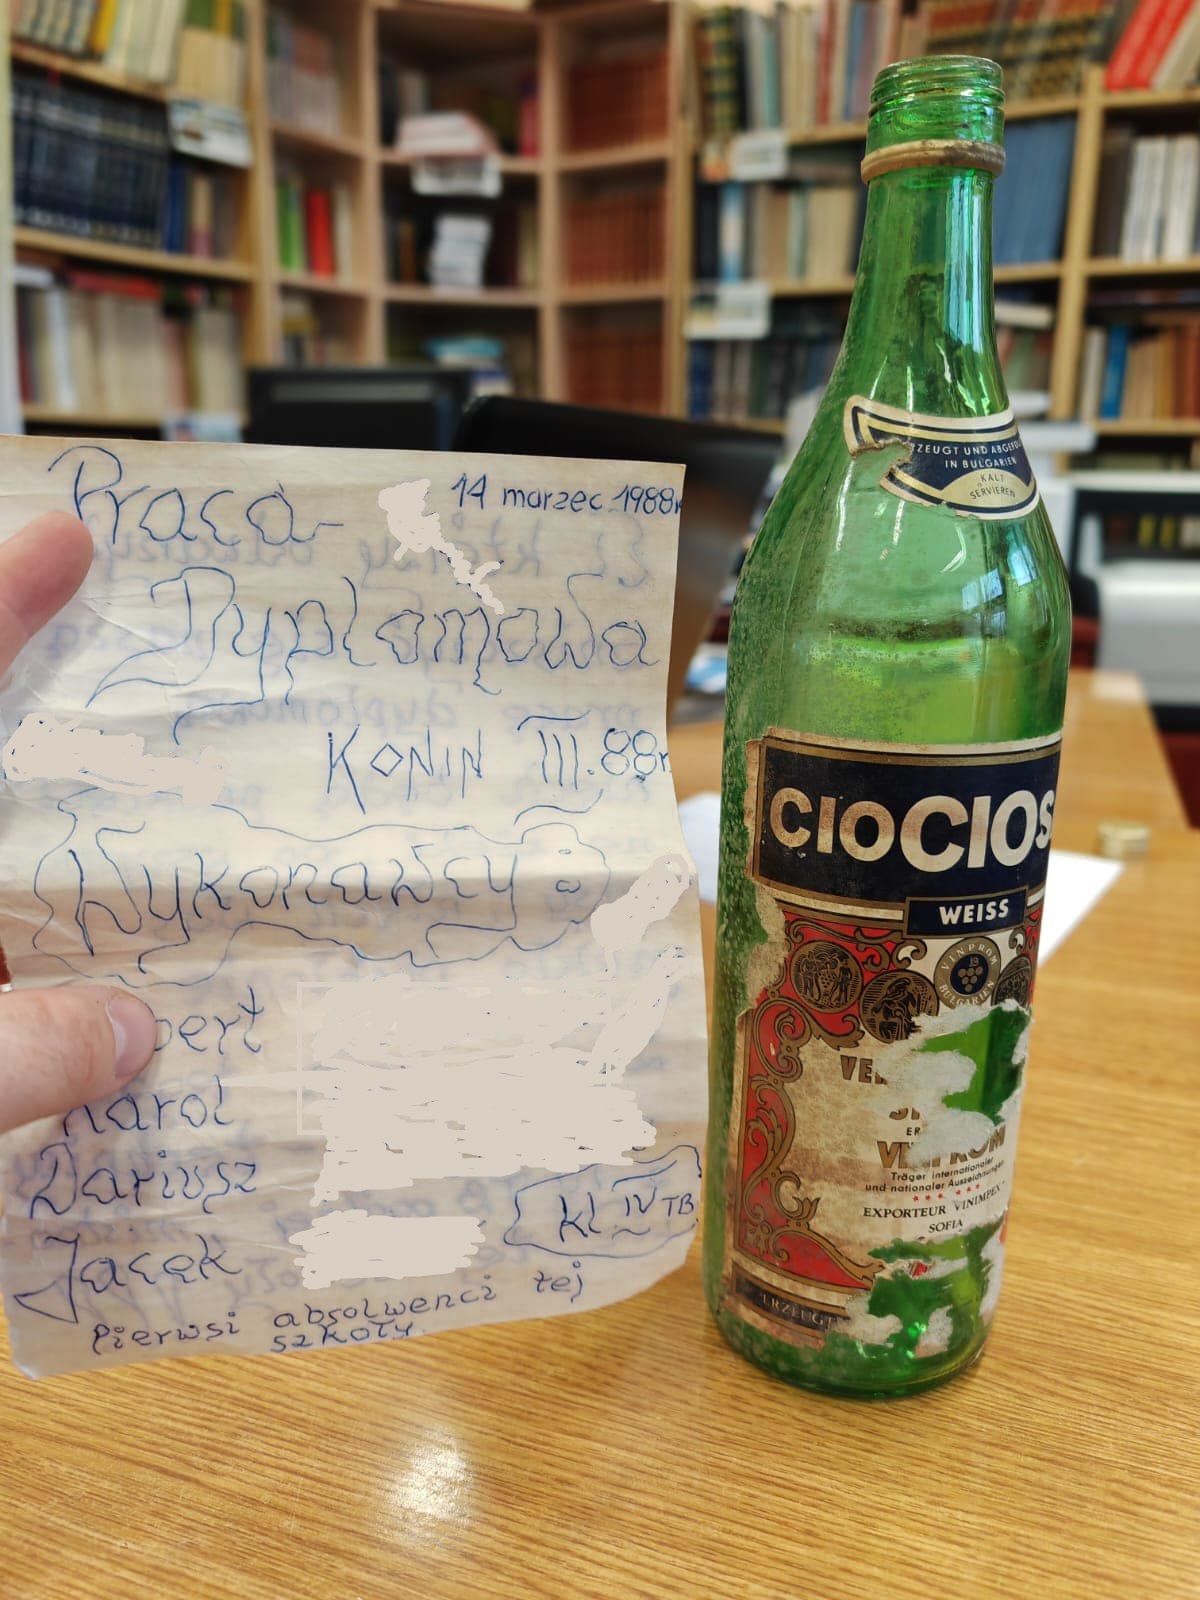 Praca
14 marzec 1988r
Dyplomowa
KONIN III.88r
Wykonawcy:
Karol
Dariusz
Jacek
kl IV TB
Pierwsi absolwenci tej
szkoły.
UND ABGEFÜ
IN BULGARIEN
KALT
SERVIEREN
CIOCIOS
WEISS
VINPROM
BULGARIEN
Träger internationaler
und nationaler Auszeichnungen
EXPORTEUR VINIMPEX
SOFIA